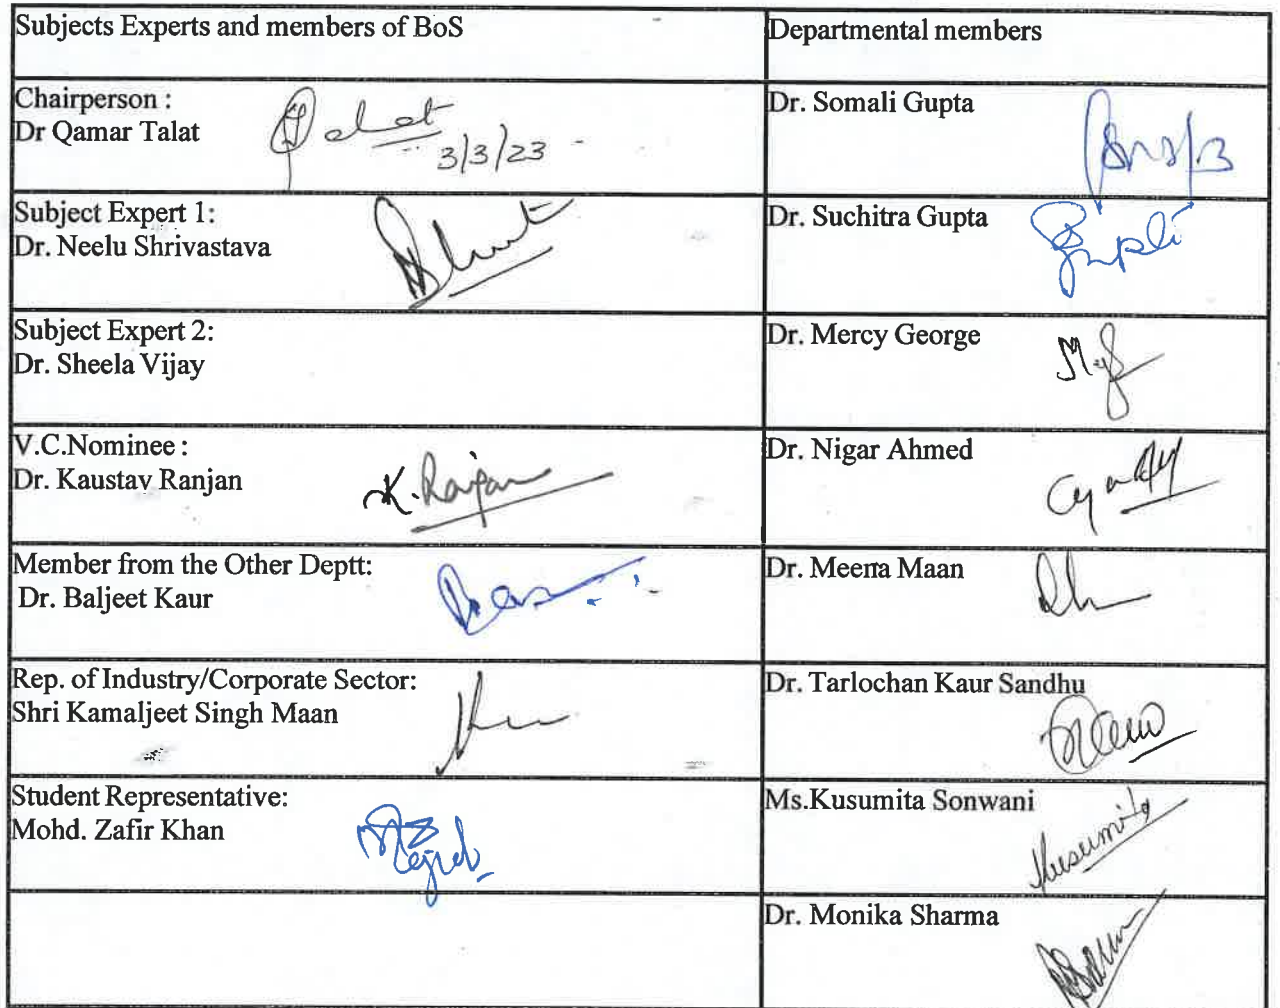 Subjects Experts and members of BoS
Departmental members
Chairperson :
Dr Qamar Talat
Talat
3/3/23
Dr. Somali Gupta
Subject Expert 1:
Dr. Neelu Shrivastava
Dr. Suchitra Gupta
Subject Expert 2:
Dr. Sheela Vijay
Dr. Mercy George
V.C.Nominee :
Dr. Kaustav Ranjan
K. Ranjan
Dr. Nigar Ahmed
Member from the Other Deptt:
Dr. Baljeet Kaur
Dr. Meena Maan
Rep. of Industry/Corporate Sector:
Shri Kamaljeet Singh Maan
Dr. Tarlochan Kaur Sandhu
Student Representative:
Mohd. Zafir Khan
Ms.Kusumita Sonwani
Kusumita
Dr. Monika Sharma